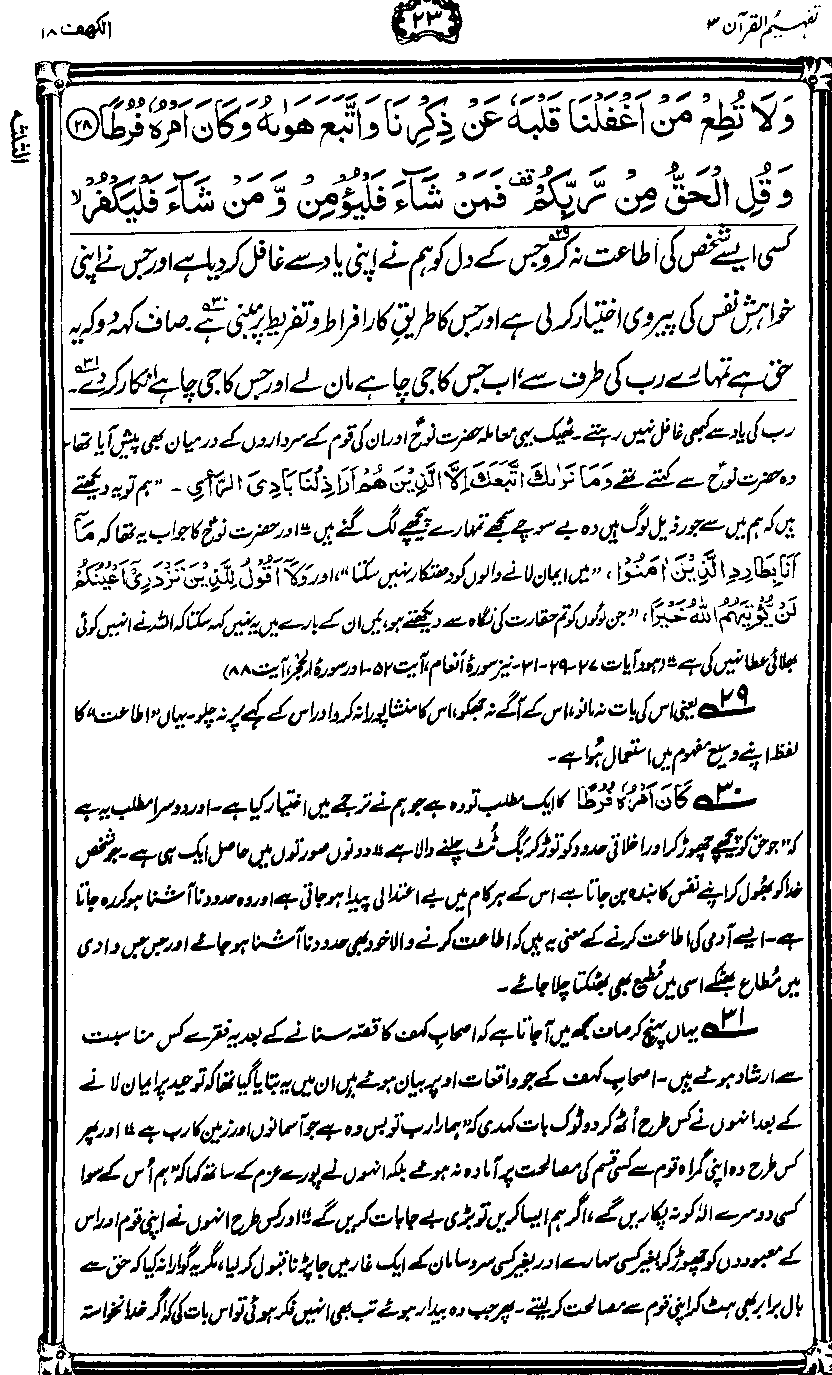 تفہیم القرآن ۳
۲۳
الکہف ۱۸
وَلَا تُطِعْ مَنْ اَغْفَلْنَا قَلْبَهٗ عَنْ ذِكْرِنَا وَاتَّبَعَ هَوٰىهُ وَكَانَ اَمْرُهٗ فُرُطًا ﴿۲۸﴾
وَقُلِ الْحَقُّ مِنْ رَّبِّكُمْ ۫ فَمَنْ شَآءَ فَلْيُؤْمِنْ وَّمَنْ شَآءَ فَلْيَكْفُرْ ۙ
کسی ایسے شخص کی اطاعت نہ کرو۲۹ جس کے دل کو ہم نے اپنی یاد سے غافل کر دیا ہے اور جس نے اپنی
خواہشِ نفس کی پیروی اختیار کر لی ہے اور جس کا طریقِ کار افراط و تفریط پر مبنی ہے۳۰۔ صاف کہہ دو کہ یہ
حق ہے تمہارے رب کی طرف سے، اب جس کا جی چاہے مان لے اور جس کا جی چاہے انکار کر دے۳۱۔
رب کی یاد سے کبھی غافل نہیں رہتے۔ ٹھیک یہی معاملہ حضرت نوحؑ اور ان کی قوم کے سرداروں کے درمیان بھی پیش آیا تھا۔
وہ حضرت نوحؑ سے کہتے تھے وَمَا نَرٰىكَ اتَّبَعَكَ اِلَّا الَّذِيْنَ هُمْ اَرَاذِلُنَا بَادِیَ الرَّاْیِ۔ ”ہم تو یہ دیکھتے
ہیں کہ ہم میں سے جو رذیل لوگ ہیں وہ بے سوچے سمجھے تمہارے پیچھے لگ گئے ہیں“ اور حضرت نوحؑ کا جواب یہ تھا کہ مَآ
اَنَا بِطَارِدِ الَّذِيْنَ اٰمَنُوْا، ”میں ایمان لانے والوں کو دھتکار نہیں سکتا“، اور وَلَآ اَقُوْلُ لِلَّذِيْنَ تَزْدَرِیْٓ اَعْيُنُكُمْ
لَنْ يُّؤْتِيَهُمُ اللّٰهُ خَيْرًا، ”جن لوگوں کو تم حقارت کی نگاہ سے دیکھتے ہو، میں ان کے بارے میں یہ نہیں کہہ سکتا کہ اللہ نے انہیں کوئی
بھلائی عطا نہیں کی ہے“ (ہود آیات ۲۷-۲۹-۳۱۔ نیز سورۂ اَنعام، آیت ۵۲۔ اور سورۂ الحجر، آیت ۸۸)
۲۹ یعنی اس کی بات نہ مانو، اس کے آگے نہ جھکو، اس کا منشا پورا نہ کرو اور اس کے کہے پر نہ چلو۔ یہاں ”اطاعت“ کا
لفظ اپنے وسیع مفہوم میں استعمال ہُوا ہے۔
۳۰ كَانَ اَمْرُهٗ فُرُطًا کا ایک مطلب تو وہ ہے جو ہم نے ترجمے میں اختیار کیا ہے۔ اور دوسرا مطلب یہ ہے
کہ ”جو حق کو پیچھے چھوڑ کر اور اخلاقی حدود کو توڑ کر بگ ٹُٹ چلنے والا ہے“ دونوں صورتوں میں حاصل ایک ہی ہے۔ جو شخص
خدا کو بھول کر اپنے نفس کا بندہ بن جاتا ہے اس کے ہر کام میں بے اعتدالی پیدا ہو جاتی ہے اور وہ حدود نا آشنا ہو کر رہ جاتا
ہے۔ ایسے آدمی کی اطاعت کرنے کے معنی یہ ہیں کہ اطاعت کرنے والا خود بھی حدود نا آشنا ہو جائے اور جس جس وادی
میں مُطاع بھٹکے اسی میں مُطیع بھی بھٹکتا چلا جائے۔
۳۱ یہاں پہنچ کر صاف سمجھ میں آ جاتا ہے کہ اصحابِ کہف کا قصّہ سنانے کے بعد یہ فقرے کس مناسبت
سے ارشاد ہوئے ہیں۔ اصحابِ کہف کے جو واقعات اوپر بیان ہوئے ہیں ان میں یہ بتایا گیا تھا کہ توحید پر ایمان لانے
کے بعد انہوں نے کس طرح اُٹھ کر دو ٹوک بات کہدی کہ ”ہمارا رب تو بس وہ ہے جو آسمانوں اور زمین کا رب ہے“ اور پھر
کس طرح وہ اپنی گمراہ قوم سے کسی قسم کی مصالحت پر آمادہ نہ ہوئے بلکہ انہوں نے پورے عزم کے ساتھ کہا کہ ”ہم اُس کے سوا
کسی دوسرے الٰہ کو نہ پکاریں گے، اگر ہم ایسا کریں تو بڑی بے جا بات کریں گے“ اور کس طرح انہوں نے اپنی قوم اور اس
کے معبودوں کو چھوڑ کر بغیر کسی سہارے اور بغیر کسی سروسامان کے ایک غار میں جا پڑنا قبول کر لیا، مگر یہ گوارا نہ کیا کہ حق سے
بال برابر بھی ہٹ کر اپنی قوم سے مصالحت کر لیتے۔ پھر جب وہ بیدار ہوئے تب بھی انہیں فکر ہوئی تو اس بات کی کہ اگر خدانخواستہ